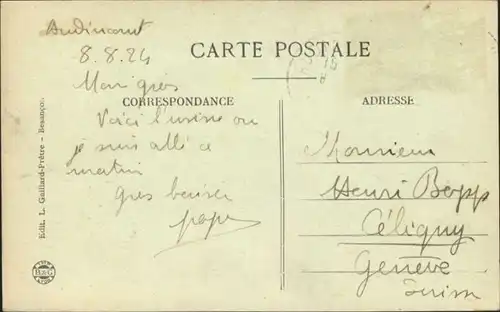 Audincourt
8.8.24
CARTE POSTALE
Mon gros
CORRESPONDANCE
Voici l'usine ou
je suis allé ce
matin
gros baiser
papa
ADRESSE
Monsieur
Henri Bopp
Céligny
Genève
Suisse
Edit. L. Gaillard-Prêtre - Besançon
B&G